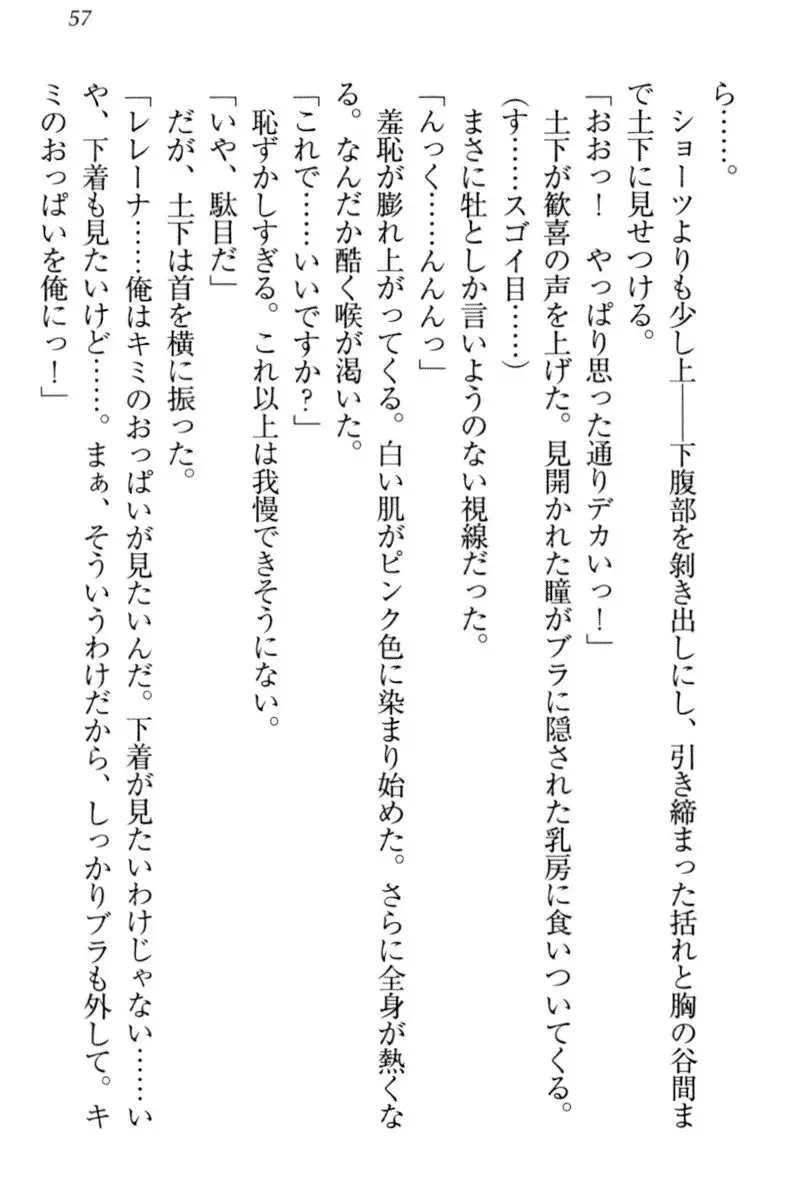 57
ら……。
　ショーツよりも少し上――下腹部を剝き出しにし、引き締まった括れと胸の谷間ま
で土下に見せつける。
「おおっ！　やっぱり思った通りデカいっ！」
　土下が歓喜の声を上げた。見開かれた瞳がブラに隠された乳房に食いついてくる。
（す……スゴイ目……）
　まさに牡としか言いようのない視線だった。
「んっく……んんんっ」
　羞恥が膨れ上がってくる。白い肌がピンク色に染まり始めた。さらに全身が熱くな
る。なんだか酷く喉が渇いた。
「これで……いいですか？」
　恥ずかしすぎる。これ以上は我慢できそうにない。
「いや、駄目だ」
　だが、土下は首を横に振った。
「レレーナ……俺はキミのおっぱいが見たいんだ。下着が見たいわけじゃない……い
や、下着も見たいけど……。まぁ、そういうわけだから、しっかりブラも外して。キ
ミのおっぱいを俺にっ！」